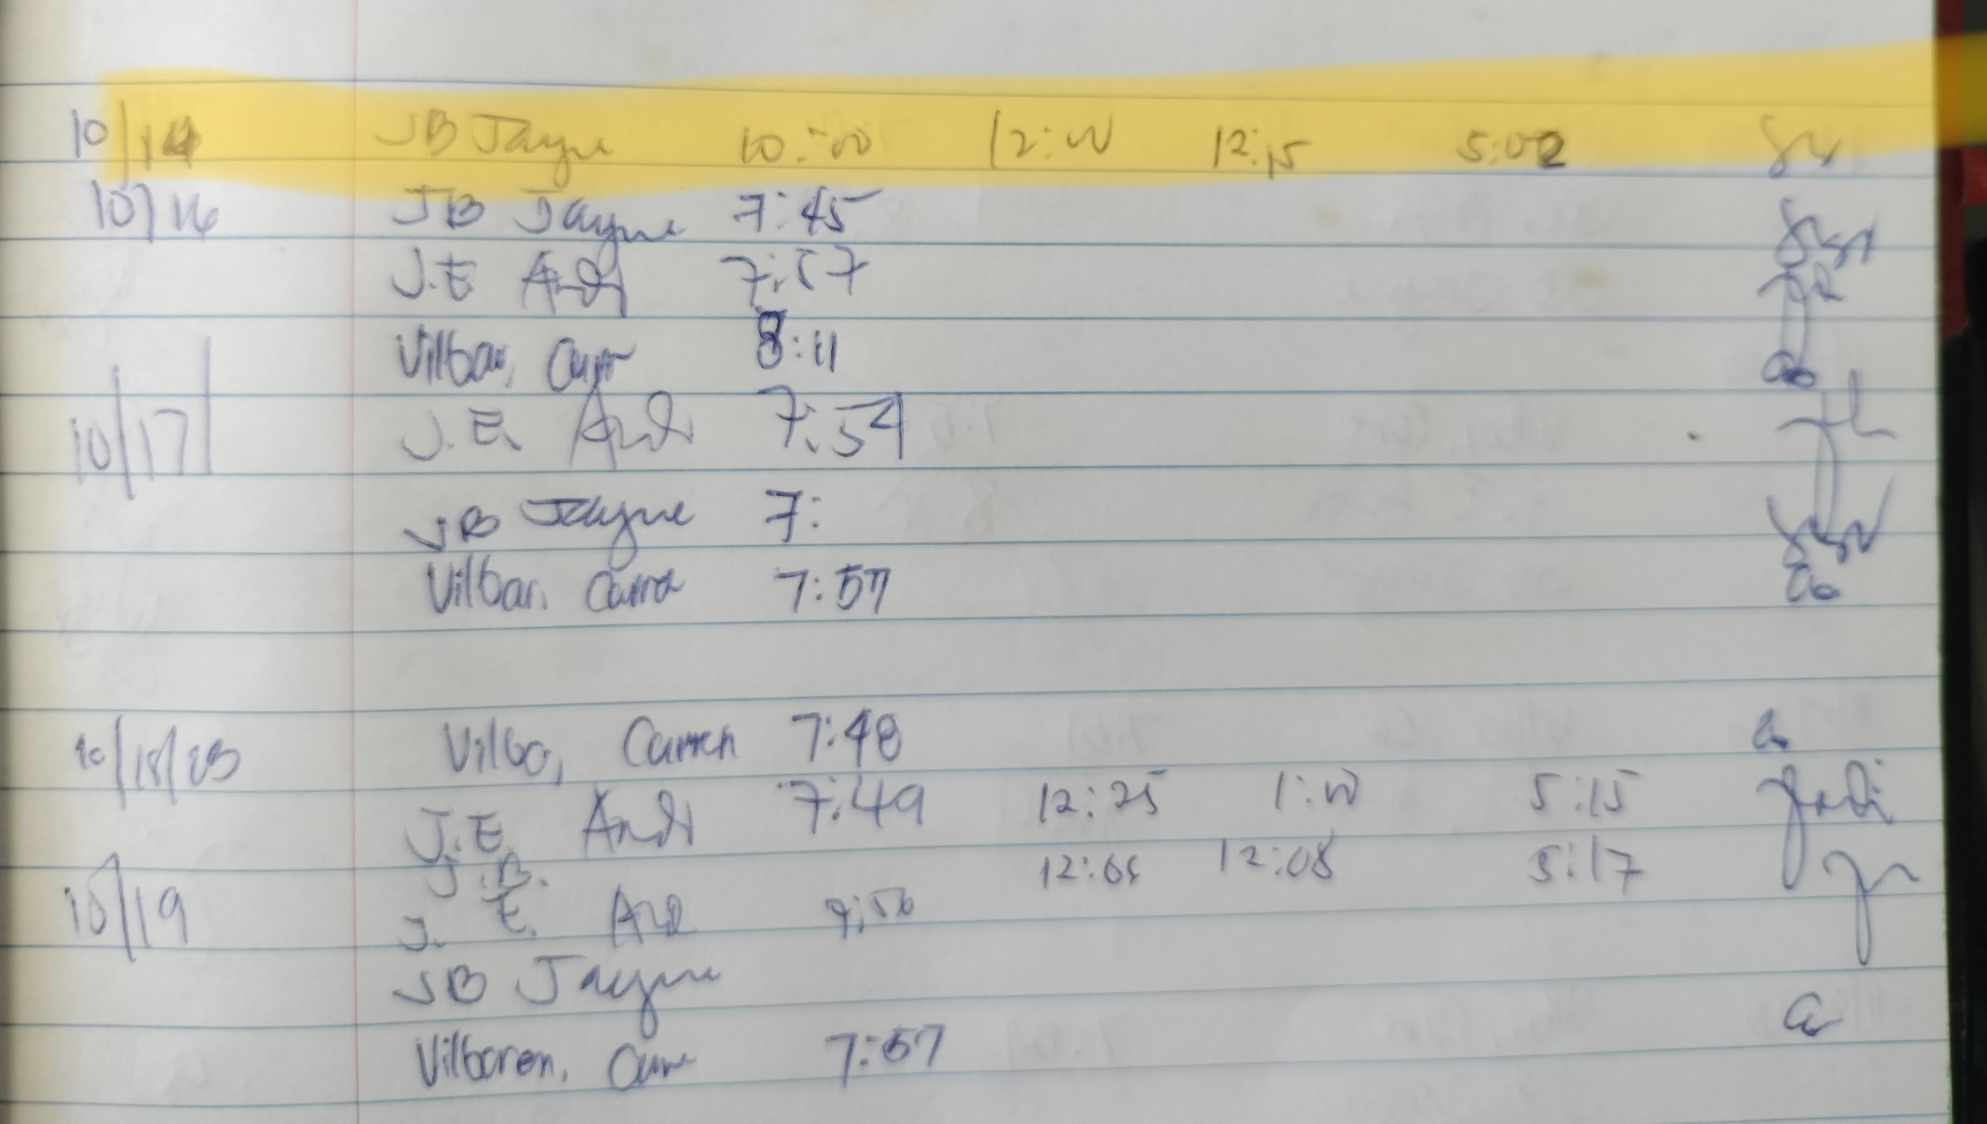 10/14 JB Jayne 10:00 12:00 12:15 5:02
10/16 JB Jayne 7:45
J.E Andi 7:57
Vilbar, 8:11
10/17 J.E. Andi 7:54
JB Jayne 7:
Vilbar, 7:57
10/18/23 Vilba, Carren 7:48
J.E. Andi 7:49 12:25 1:00 5:15
J.B. 12:08 5:17
10/19 J. E. And
JB Jayne
Vilbaren, 7:57